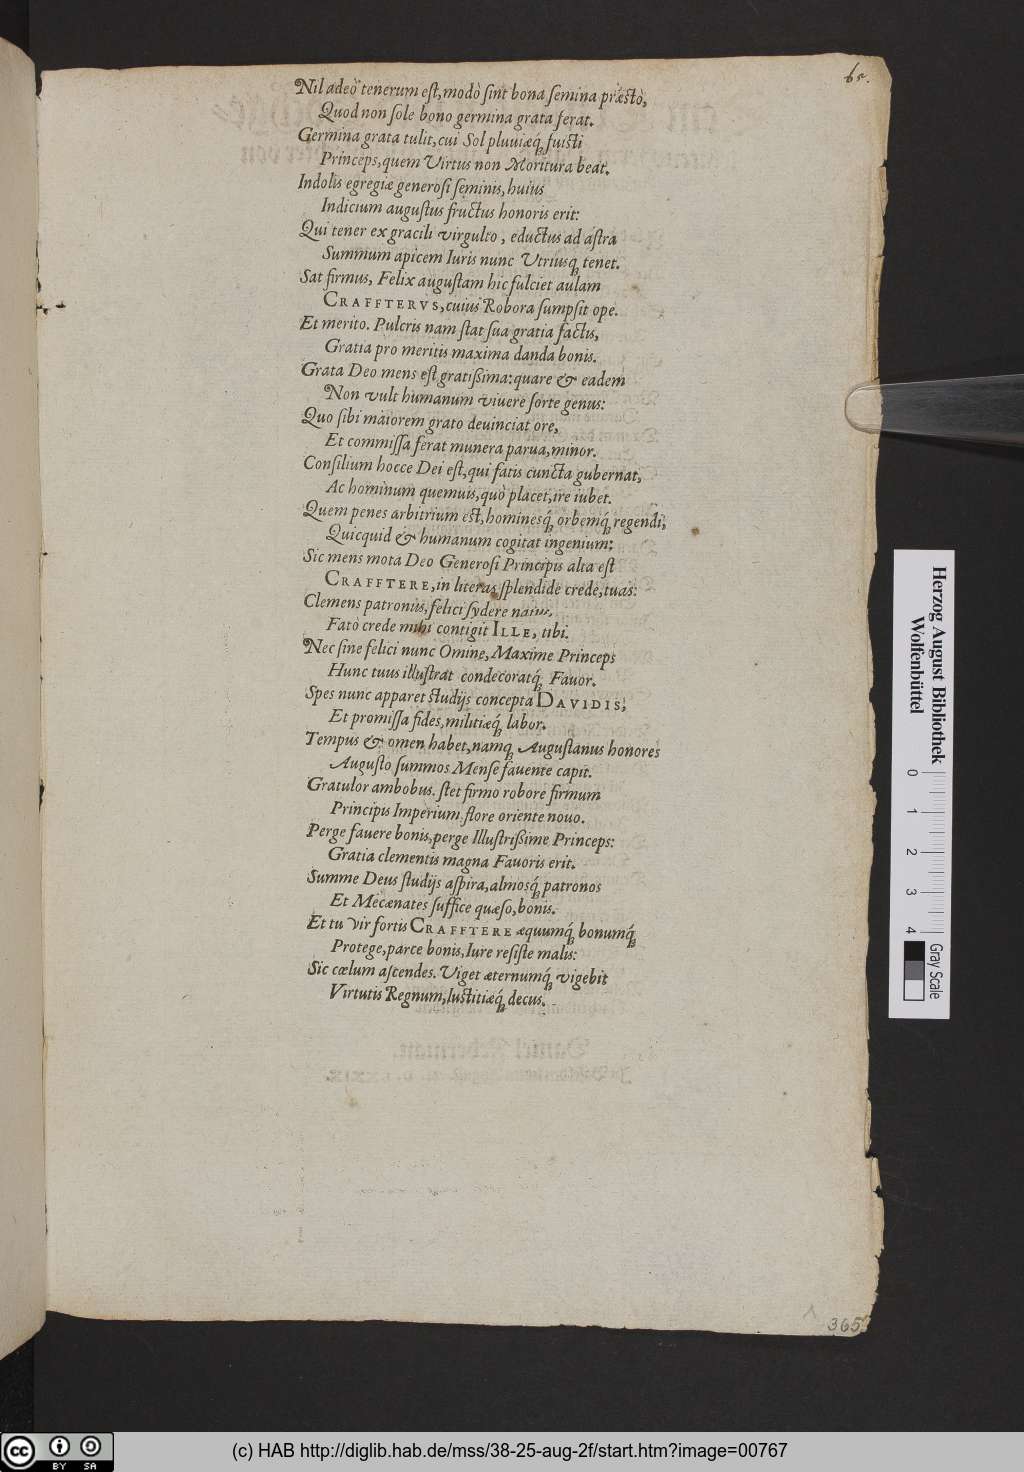 65.
Nil adeò tenerum est, modò sint bona semina præstò,
Quod non sole bono germina grata ferat.
Germina grata tulit, cui Sol pluuiæq́; fuisti
Princeps, quem Virtus non Moritura beat.
Indolis egregiæ generosi seminis, huius
Indicium augustus fructus honoris erit:
Qui tener ex gracili virgulto, eductus ad astra
Summum apicem Iuris nunc Vtriusq; tenet.
Sat firmus, Felix augustam hic fulciet aulam
CRAFFTERVS, cuius Robora sumpsit ope.
Et merito. Pulcris nam stat sua gratia factis,
Gratia pro meritis maxima danda bonis.
Grata Deo mens est gratißima: quare & eadem
Non vult humanum viuere sorte genus:
Quo sibi maiorem grato deuinciat ore,
Et commissa ferat munera parua, minor.
Consilium hocce Dei est, qui fatis cuncta gubernat,
Ac hominum quemuis, quò placet, ire iubet.
Quem penes arbitrium est, hominesq́; orbemq́; regendi,
Quicquid & humanum cogitat ingenium:
Sic mens mota Deo Generosi Principis alta est
CRAFFTERE, in literas splendide crede, tuas:
Clemens patronus, felici sydere natus,
Fato crede mihi contigit ILLE, tibi.
Nec sine felici nunc Omine, Maxime Princeps
Hunc tuus illustrat condecoratq́; Fauor.
Spes nunc apparet studijs concepta DAVIDIS,
Et promissa fides, militiæq́; labor.
Tempus & omen habet, namq; Augustanus honores
Augusto summos Mense fauente capit.
Gratulor ambobus. stet firmo robore firmum
Principis Imperium flore oriente nouo.
Perge fauere bonis, perge Illustrißime Princeps:
Gratia clementis magna Fauoris erit.
Summe Deus studijs aspira, almosq́; patronos
Et Mecænates suffice quæso, bonis.
Et tu vir fortis CRAFFTERE æquumq́; bonumq́;
Protege, parce bonis, Iure resiste malis:
Sic cœlum ascendes. Viget æternumq́; vigebit
Virtutis Regnum, Iustitiæq́; decus.
365
Herzog August Bibliothek
Wolfenbüttel
0 1 2 3 4
Gray Scale
cc BY SA
(c) HAB http://diglib.hab.de/mss/38-25-aug-2f/start.htm?image=00767